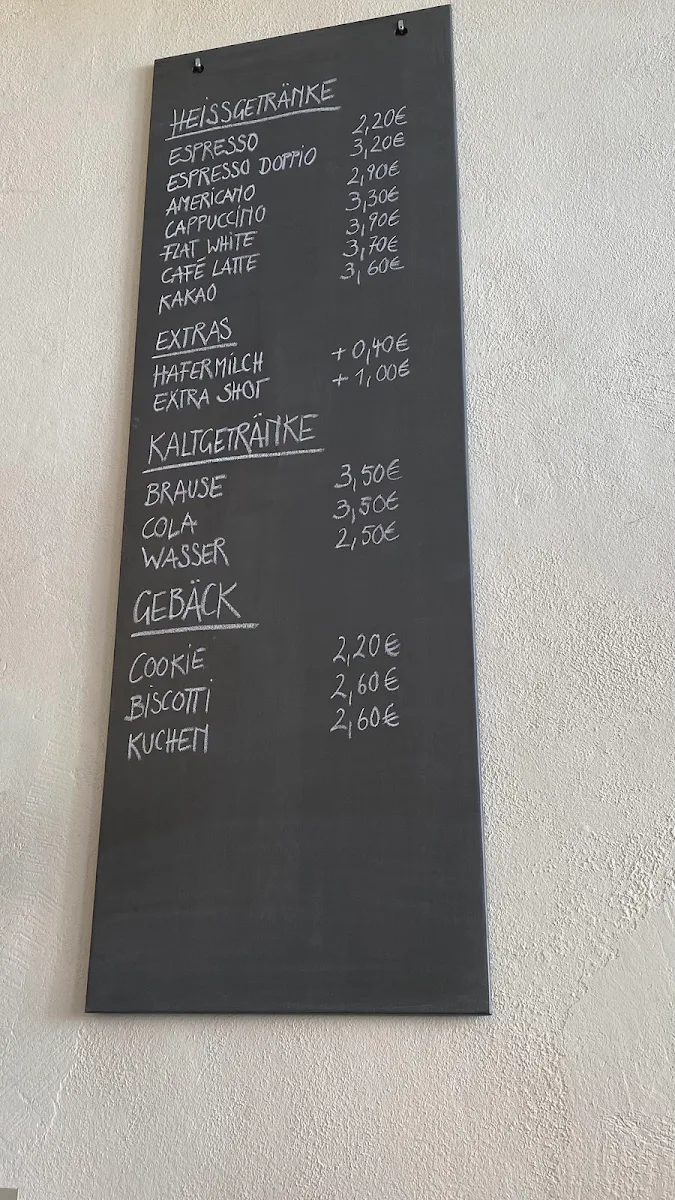 HEISSGETRÄNKE
ESPRESSO 2,20€
ESPRESSO DOPPIO 3,20€
AMERICANO 2,90€
CAPPUCCINO 3,30€
FLAT WHITE 3,90€
CAFÉ LATTE 3,70€
KAKAO 3,60€
EXTRAS
HAFERMILCH + 0,40€
EXTRA SHOT + 1,00€
KALTGETRÄNKE
BRAUSE 3,50€
COLA 3,50€
WASSER 2,50€
GEBÄCK
COOKIE 2,20€
BISCOTTI 2,60€
KUCHEN 2,60€